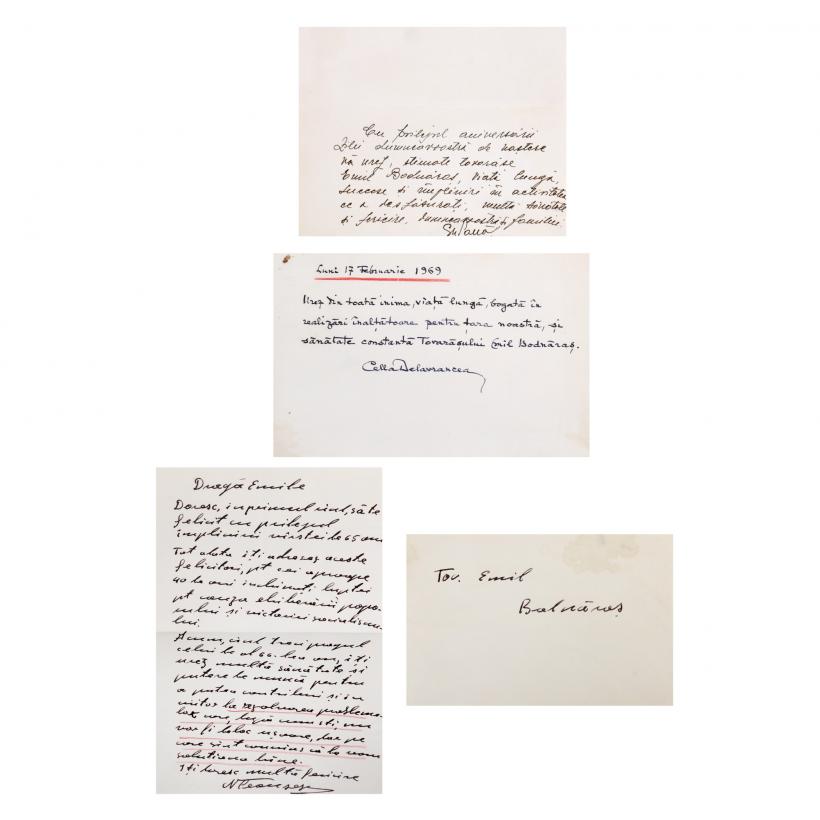 Cu prilejul aniversării
Zilei dumneavoastră de naștere
vă urez, stimate tovarăse
Emil Bodnăraș, viață lungă,
succese și împliniri în activitatea
ce o desfășurați, multă sănătate
și fericire, dumneavoastră și familiei.
Luni 17 Februarie 1969
Urez din toată inima, viață lungă, bogată în
realizări înalțătoare pentru țara noastră, și
sănătate constantă Tovarășului Emil Bodnăraș.
Cella Delavrancea
Dragă Emile
Doresc, in primul rînd, să te
felicit cu prilejul
împlinirii vîrstei de 65 ani
Tot odată iți adresez aceste
felicitări, pt cei aproape
40 de ani inchinați luptei
pt cauza eliberării popo-
rului și victoriei socialismu-
lui.
Acum, cînd treci pragul
celui de al 66-lea an, iți
urez multă sănătate și
putere de muncă pentru
a putea contribui și in
viitor la rezolvarea probleme-
lor care, după cum știi, nu
vor fi deloc ușoare, dar pe
care sint convins că le vom
soluționa bine.
Iți doresc multă fericire
N Ceaușescu
Tov. Emil
Bodnăraș